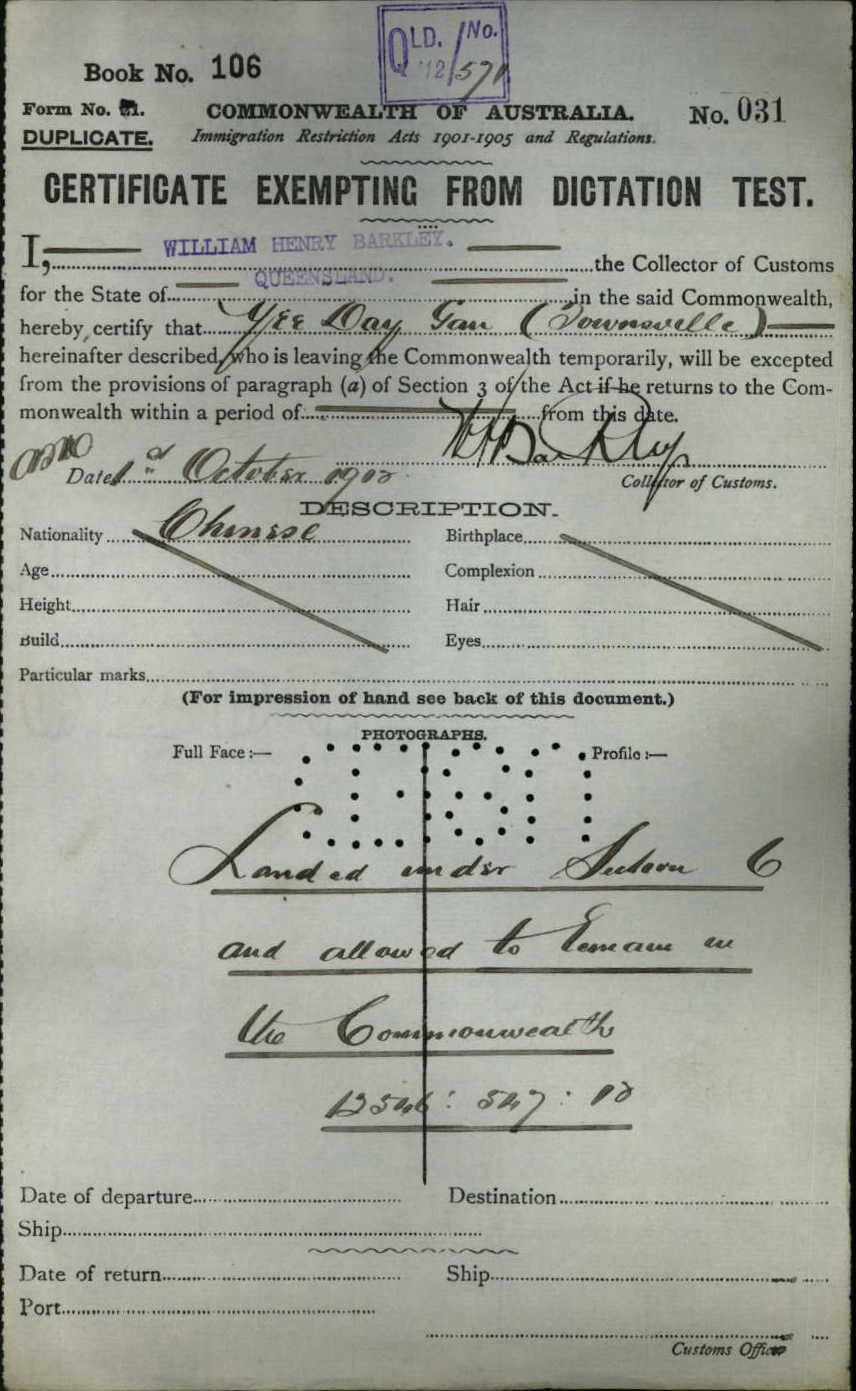 QLD. No.
'12/571
Book No. 106
Form No. 21.
COMMONWEALTH OF AUSTRALIA.
No. 031
DUPLICATE.
Immigration Restriction Acts 1901-1905 and Regulations.
CERTIFICATE EXEMPTING FROM DICTATION TEST.
I, WILLIAM HENRY BARKLEY. the Collector of Customs
for the State of QUEENSLAND. in the said Commonwealth,
hereby certify that Yee Day Gan (Townsville)
hereinafter described, who is leaving the Commonwealth temporarily, will be excepted
from the provisions of paragraph (a) of Section 3 of the Act if he returns to the Com-
monwealth within a period of from this date.
W H Barkley
Date 1 October 1912
Collector of Customs.
DESCRIPTION.
Nationality Chinese
Birthplace
Age
Complexion
Height
Hair
Build
Eyes
Particular marks
(For impression of hand see back of this document.)
PHOTOGRAPHS.
Full Face :—
Profile :—
Landed under Section 6
and allowed to remain in
the Commonwealth
Date of departure
Destination
Ship
Date of return
Ship
Port
Customs Officer